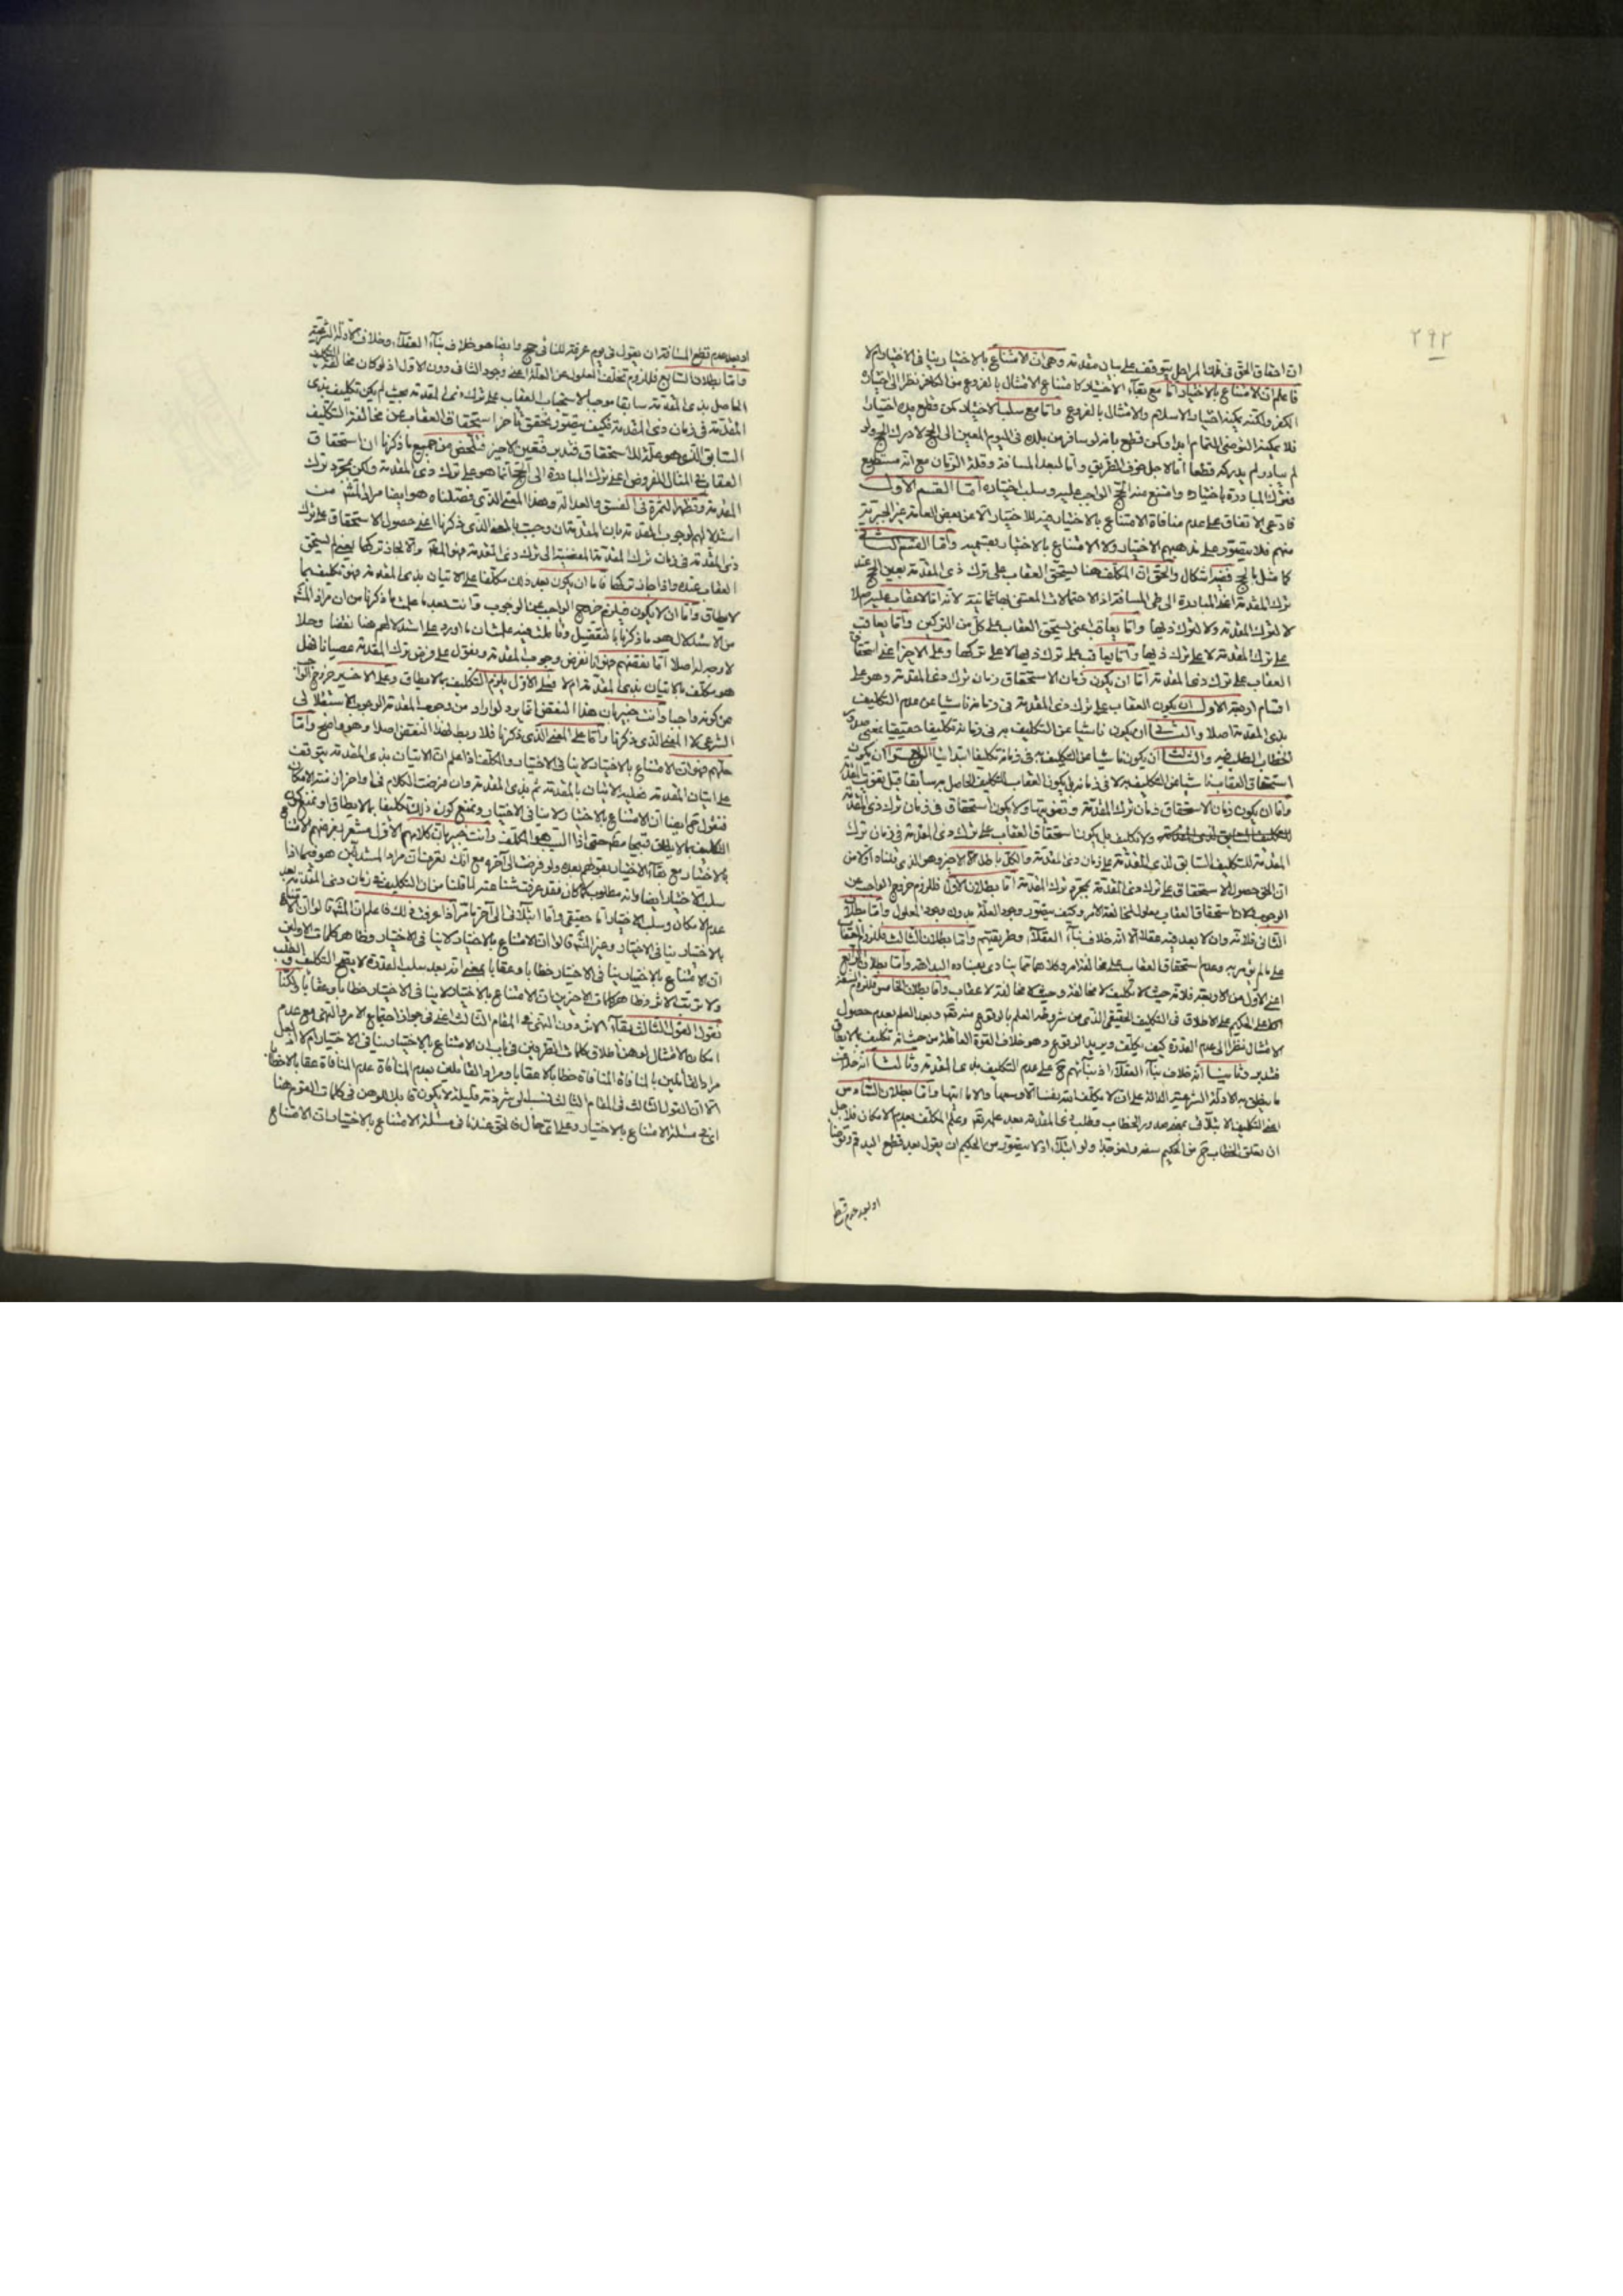 ٢٩٢
ان احقاق الحق فى هذا المرامل يتوقف على بيان مقدمة وهى ان الامتناع بالاختيار ينافى الاختيار ام لا
فاعلم ان الامتناع بالاختيار اما مع بقاء الاختيار كامتناع الامتثال بالفروع من الكافر نظرا الى اختياره
الكفر ولكنه يمكنه اختيار الاسلام والامتثال بالفروع واما مع سلب الاختيار كمن قطع يده اختيارا
فلا يمكنه الوضوء التمام ابدا وكمن قطع بانه لو سافر من بلده فى اليوم المعين الى الحج لادرك الحج ولو
لم يسافر لم يدركه قطعا اما لاجل خوف الطريق واما لبعد المسافة وقلة الزمان مع انه مستطيع
فترك المبادرة باختياره وامتنع عنه الحج الواجب عليه وسلب اختياره اما القسم الاول
فادعى الاتفاق على عدم منافاة الامتناع بالاختيار فيه للاختيار الا عن بعض العامة غير الجبرية
منهم فلا يتصور على مذهبهم الاختيار ولا الامتناع بالاختيار بقسميه واما القسم الثانى
كامثل بالحج ففيه اشكال والحق ان المكلف هنا يستحق العقاب على ترك ذى المقدمة بعين الحج عند
ترك المقدمة اعنى المبادرة الى طى المسافة اذ الاحتمالات المعتنى بها ثمانية لانه اما لا عقاب عليه اصلا
لا لترك المقدمة ولا لترك ذيها واما يعاقب اعنى يستحق العقاب على كل من التركين واما يعاقب
على ترك المقدمة لا على ترك ذيها واما يعاقب على ترك ذيها لا على تركها وعلى الاخير اعنى استحقاق
العقاب على ترك ذى المقدمة اما ان يكون زمان الاستحقاق زمان ترك ذى المقدمة وهو على
اقسام اربعة الاول ان يكون العقاب على ترك ذى المقدمة فى زمانه ناشيا عن عدم التكليف
بذى المقدمة اصلا والثانى ان يكون ناشيا عن التكليف به فى زمانه تكليفا حقيقيا بمعنى صدور
الخطاب الطلب فيه والثالث ان يكون ناشيا عن التكليف به فى زمانه تكليفا ابتدائيا الرابع ان يكون
استحقاق العقاب ناشيا عن التكليف به لا فى زمانه بل يكون العقاب للتكليف الحاصل به سابقا قبل تفويت المقدمة
واما ان يكون زمان الاستحقاق زمان ترك المقدمة وتفويتها ولا يكون استحقاق فى زمان ترك ذى المقدمة
ولا تكليف بل يكون استحقاق العقاب على ترك ذى المقدمة فى زمان ترك
المقدمة للتكليف السابق لذى المقدمة على زمان ذى المقدمة والكل باطل الا الاخير وهو الذى قلناه اولا من
ان الحق حصول الاستحقاق على ترك ذى المقدمة بمجرد ترك المقدمة اما بطلان الاول فللزوم خروج الواجب عن
الوجوب لان استحقاق العقاب معلول لمخالفة الامر وكيف يتصور وجود العلة بدون وجود المعلول واما بطلان
الثانى فلانه وان لا بعد فيه عقلا الا انه خلاف بناء العقلاء وطريقتهم واما بطلان الثالث فللزوم العقاب
على ما لم يؤمر به وعدم استحقاق العقاب على مخالفة امر وكلاهما مما ينادى بفساده البداهة واما بطلان الرابع
اعنى الاول من الاربعة فلانه حيث لا تكليف لا مخالفة وحيث لا مخالفة لا عقاب واما بطلان الخامس فللزوم السفه
على الحكيم على الاطلاق فى التكليف الحقيقى الذى من شروطه العلم بالوقوع منه تعم وبعد العلم بعدم حصول
الامتثال نظرا الى عدم القدرة كيف يكلف ويريد الوقوع وهو خلاف القوة العاقلة من حيث انه تكليف بما لا يطاق
فتدبر وثانيا انه خلاف بناء العقلاء اذ بناؤهم ح على عدم التكليف بذى المقدمة وثالثا انه خلاف
ما ينطق به الادلة الشرعية الدالة على ان لا يكلف الله نفسا الا وسعها والا ما اتيها واما بطلان السادس
اعنى التكليف الابتلائى بمعنى صدور الخطاب وطلب ذى المقدمة بعد علمه تعم وعلم المكلف بعدم الامكان فلاجل
ان تعلق الخطاب ح من الحكيم سفه ولغو جدا ولو ابتلاء اذ لا يتصور من الحكيم ان يقول بعد قطع اليد قم وتوضأ
او بعد عدم قطع
او بعد عدم قطع المسافة ان يقول فى يوم عرفة للنائى حج وايضا هو خلاف بناء العقلاء وخلاف الادلة الشرعية
واما بطلان السابع فللزوم تخلف المعلول عن العلة اعنى وجود الثانى دون الاول اذ لو كان مخالفة التكليف
الحاصل بذى المقدمة سابقا موجبا لاستحقاق العقاب على ترك ذى المقدمة بحيث لم يكن تكليف بذى
المقدمة فى زمان ذى المقدمة فكيف يتصور تحقق تاخر استحقاق العقاب عن مخالفة التكليف
السابق الذى هو علة للاستحقاق فتدبر فتعين الاخير فتلخص من جميع ما ذكرنا ان استحقاق
العقاب فى المثال المفروض اعنى ترك المبادرة الى الحج انما هو على ترك ذى المقدمة ولكن بمجرد ترك
المقدمة وتظهر الثمرة فى الفسق والعدالة وهذا المعنى الذى فصلناه هو ايضا مراد المشهور من
استدلالهم لوجوب المقدمة بان المقدمة ان وجبت بالمعنى الذى ذكرنا اعنى حصول الاستحقاق على ترك
ذى المقدمة فى زمان ترك المقدمة المفضية الى ترك ذى المقدمة فهو المط والا لجاز تركها بمعنى لم يستحق
العقاب عنده واذا جاز تركها فاما ان يكون بعد ذلك مكلفا على الاتيان بذى المقدمة فهو تكليف بما
لا يطاق واما ان لا يكون فيلزم خروج الواجب عن الوجوب وانت بعد ما علمت ما ذكرنا من ان مراد المشهور
من الاستدلال هو ما ذكرنا بالتفصيل وتاملت فيه علمت ان ما اورد على استدلالهم هنا نقضا وحلا
لا وجه له اصلا اما نقضهم فهو انا نفرض وجوب المقدمة ونقول على فرض ترك المقدمة عصيانا فهل
هو مكلف بالاتيان بذى المقدمة ام لا فعلى الاول يلزم التكليف بما لا يطاق وعلى الاخير خروج الواجب
عن كونه واجبا وانت خبير بان هذا النقض انما يرد لو ارادو من وجوب المقدمة الوجوب الاستقلالى
الشرعى لا المعنى الذى ذكرنا واما على المعنى الذى ذكرنا فلا ربط لهذا النقض اصلا وهو واضح واما
حلهم فهو ان الامتناع بالاختيار لا ينافى الاختيار والمكلف اذا علم ان الاتيان بذى المقدمة يتوقف
على اتيان المقدمة فعليه الاتيان بالمقدمة ثم بذى المقدمة وان فرضت الكلام فى اواخر ازمنة الامكان
فنقول ح ايضا ان الامتناع بالاختيار لا ينافى الاختيار ونمنع كون ذلك تكليفا بما لا يطاق او نمنع كون
التكليف بما لا يطاق قبيحا مطم حتى اذا السبب هو المكلف وانت خبير بان كلامهم الاول مشعر بفرضهم الامتناع
بالاختيار مع بقاء الاختيار بقولهم بعده ولو فرضت الى آخره مع انك تعرف ان مراد المستدلين هو فيما اذا
سلب الاختيار ايضا وانه مطلوب كما كان فقد عرفت شناعته لما قلنا من ان التكليف فى زمان ذى المقدمة بعد
عدم الامكان وسلب الاختيار اما حقيقى واما ابتلائى الى آخر ما مر اذا عرفت ذلك فاعلم ان المشهور قالوا ان الامتناع
بالاختيار ينافى الاختيار وغير المشهور قالوا ان الامتناع بالاختيار لا ينافى الاختيار وظاهر كلمات الاولين
ان الامتناع بالاختيار ينافى الاختيار خطابا وعقابا بمعنى انه بعد سلب القدرة لا يقبح التكليف والطلب
ولا ترتب الاثر وظاهر كلمات الاخيرين ان الامتناع بالاختيار لا ينافى الاختيار خطابا وعقابا ولكنا
نقول القول الثالث بقاء الاثر دون النهى فى المقام الثالث اعنى فى جواز اجتماع الامر والنهى مع عدم
امكان الامتثال اوهن اطلاق كلمات الطرفين فى باب ان الامتناع بالاختيار ينافى الاختيار ام لا اذ لعل
مراد القائلين بالمنافاة المنافاة خطابا لا عقابا ومراد القائلين بعدم المنافاة عدم المنافاة عقابا لا خطابا
الا ان القول الثالث فى المقام الثالث نسب الى شرذمة قليلة لا يكون قابلا للوهن فى كلمات القوم هنا
اى فى مسئلة الامتناع بالاختيار وعلى اى حال فالحق عندنا فى مسئلة الامتناع بالاختيار ان الامتناع